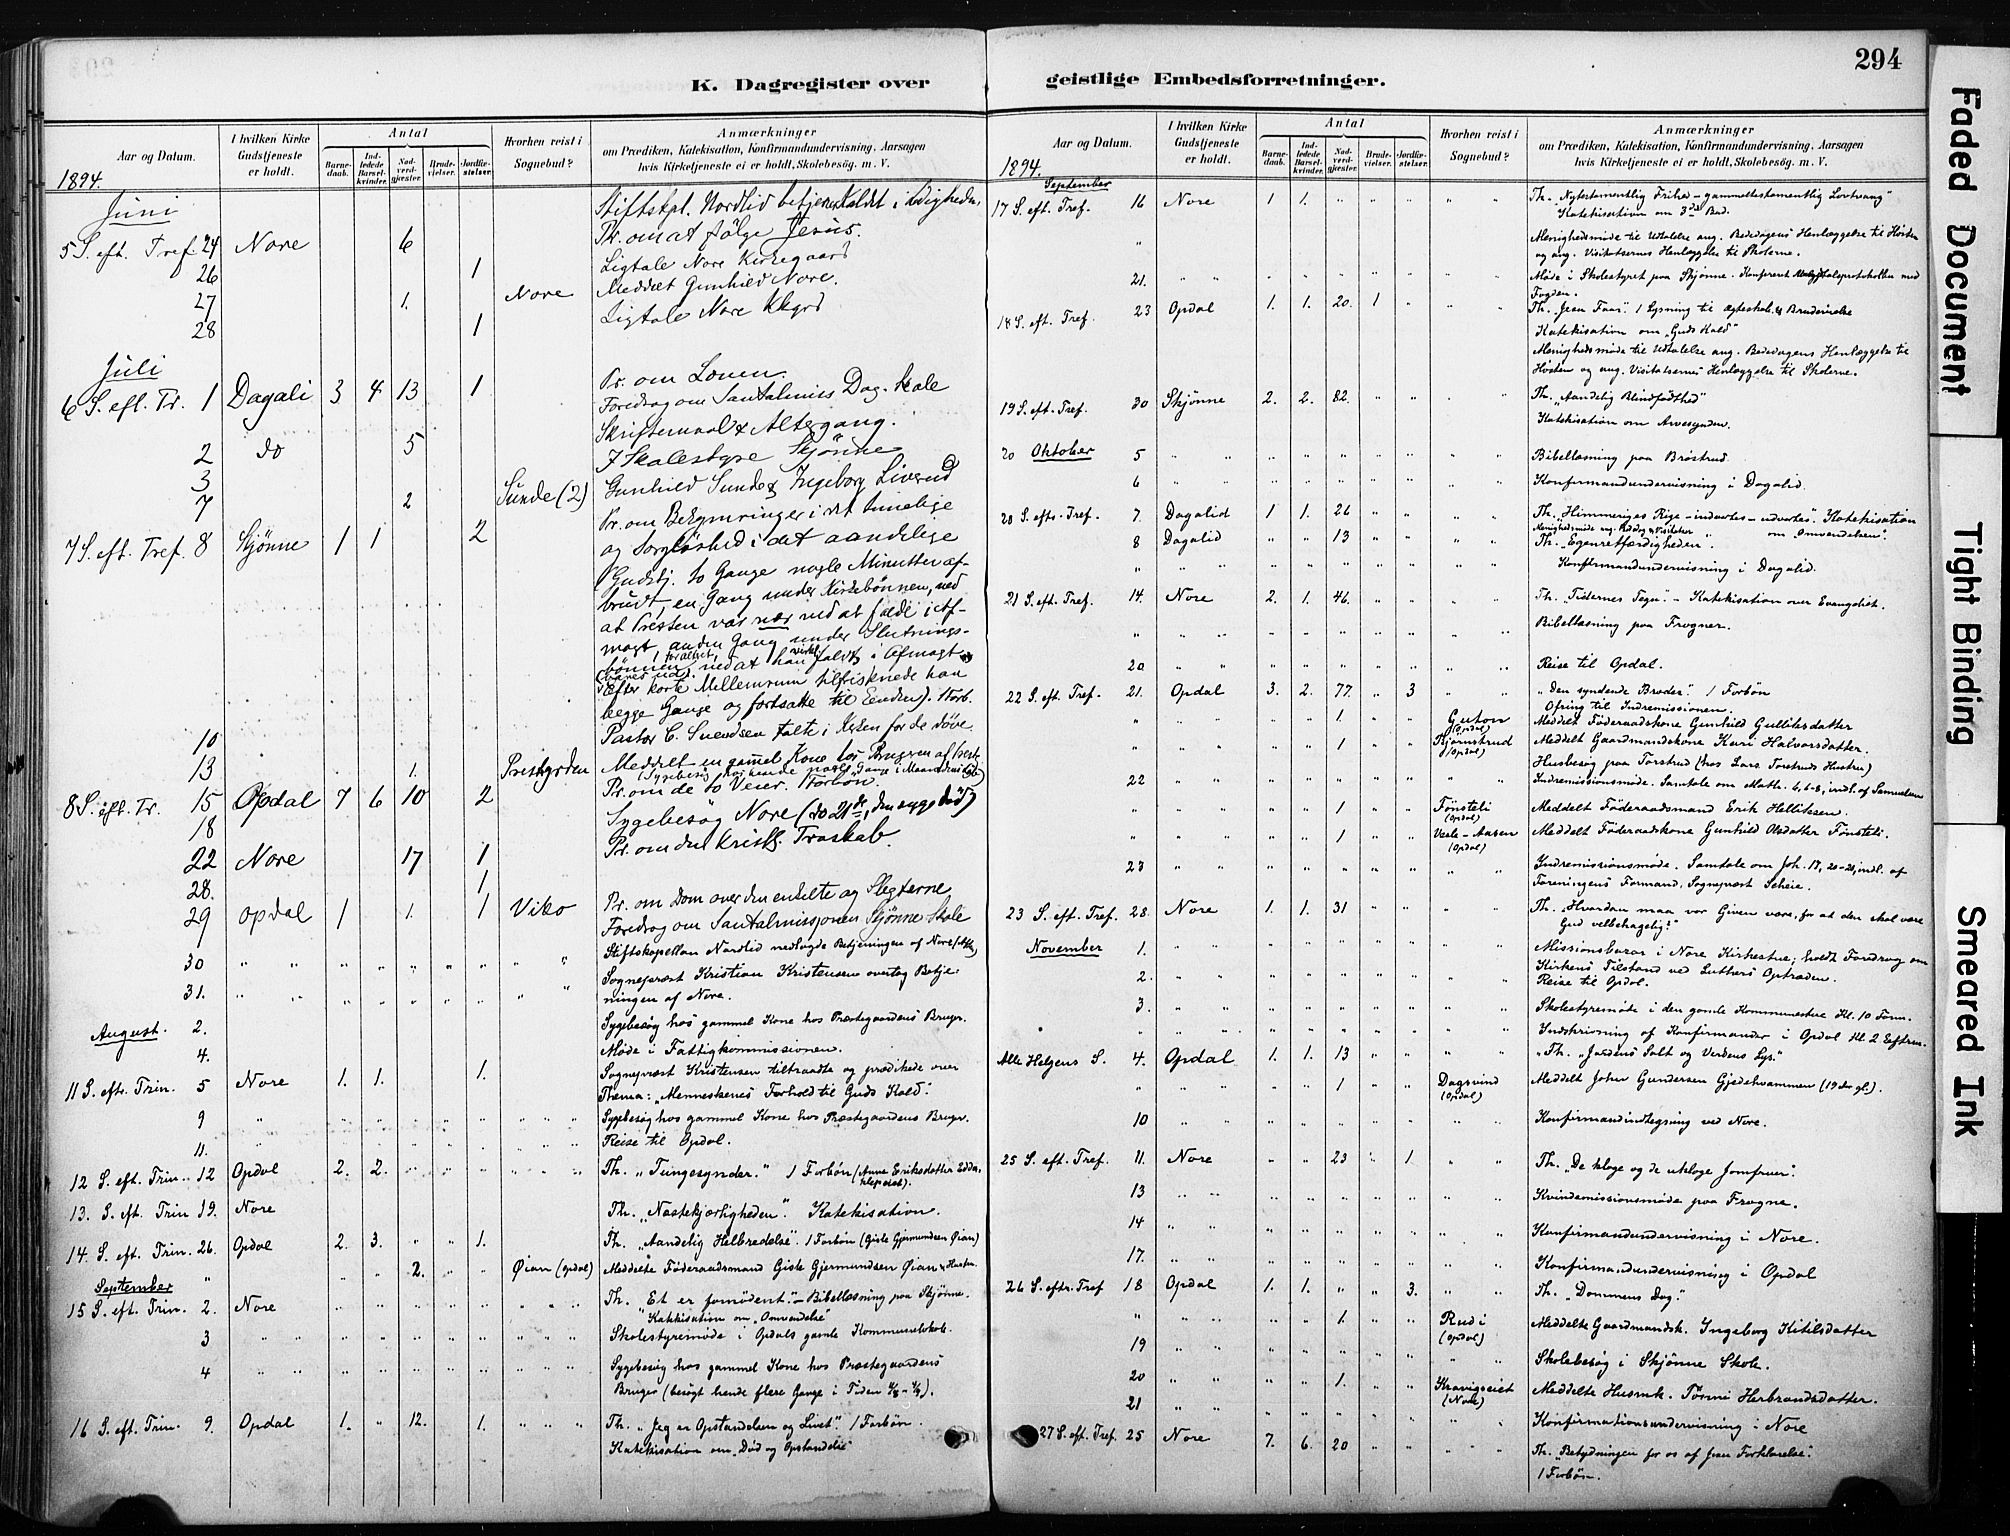 294
K. Dagregister over
geistlige Embedsforretninger.
Aar og Datum.
I hvilken Kirke Gudstjeneste er holdt.
Antal
Barnedaab.
Indledede Barselkvinder.
Nadverdgjæster.
Brudevielser.
Jordfæstelser.
Hvorhen reist i Sognebud?
Anmærkninger
om Prædiken, Katekisation, Konfirmandundervisning, Aarsagen
hvis Kirketjeneste ei er holdt, Skolebesøg. m. V.
1894.
Juni
Stiftskpl. Nordlid betjener Kaldet i Ledigheden.
5 S. eft. Tref. 24 Nore 6 Pr. om at følge Jesus.
26 1 Ligtale Nore Kirkegaard
27 1. Nore Meddelt Gunhild Nore.
28 1 Ligtale Nore Kkgrd
Juli
6 S. eft. Tr. 1 Dagali 3 4 13 1 Pr. om Loven.
Foredrag om Santalmiss Dag. Skole
2 do 5 Skriftemaal & Altergang.
3 I Skolestyre Skjønne
7 2 Sunde (2) Gunhild Sunde & Ingeborg Liverud
7 S. eft. Tref. 8 Skjønne 1 1 2 Pr. om Bekymringer i det timelige
og Sorgløshed i det aandelige
(Gudstj. to Gange nogle Minutter af-
brudt, en Gang under Kirkebønnen, ved
at Presten var nær ved at falde i Af-
magt, anden Gang under Slutnings-
bønnen, ved at han virkl. faldt i Afmagt
Efter korte Mellemrum tilfrisknede han
begge Gange og fortsatte til Enden). 1 Forb.
10 Pastor C. Svendsen talte i Kirken for de døve
13 1. Prestgrden Meddelt en gammel Kone
8 S. eft. Tr. 15 Opdal 7 6 10 2 Pr. om de to Veier. 1 Forbøn.
18 Sygebesøg Nore (do 21de, den syge død)
22 Nore 17 1 Pr. om den Kristl. Troskab.
28. 1
29 Opdal 1 1. 1 Viko Pr. om Dom over den enkelte og Slegterne
Foredrag om Santalmissjonen Skjønne Skole
30 " " Stiftskapellan Nordlid nedlagde Betjeningen af Nore
31. " " Sogneprest Kristian Kristensen overtog Betje-
ningen af Nore.
August. 2. Sygebesøg hos gammel Kone hos Præstegaardens Bruger.
4. Møde i Fattigkommissionen.
11 S. eftr. Trin. 5 Nore 1. 1. 1. Sogneprest Kristensen tiltraadte og prædikede over
Thema: "Menneskenes Forhold til Guds Kald".
9 " Sygebesøg hos gammel Kone hos Præstegaardens Bruger.
11. " Reise til Opdal.
12 S. eft. Trin. 12 Opdal 2. 2. Th. "Tungesynder." 1 Forbøn (Anne Eriksdatter
13. S. eft. Trin 19. Nore Th. "Næstekjærligheden". Katekisation.
14. S. eft. Trin. 26. Opdal 2. 3. " " 1. Th. "Aandelig Helbredelse". 1 Forbøn (Gisle Gjermundsen Øian)
" 2. Øian (Opdal) Meddelte Føderaadsmand Gisle Gjermundsen Øian & Hustru.
September
15 S. eft. Trin. 2. Nore Th. "Et er fornødent". – Bibellæsning paa Skjønne.
Katekisation om "Omvendelse"
3 " " Skolestyremøde i Opdals gamle Kommunelokale.
4 " " Sygebesøg hos gammel Kone hos Præstegaardens
Bruger (besøgt hende flere Gange i Tiden
16 S. eft. Trin. 9. Opdal 1. " 12. 1. Th. "Jeg er Opstandelsen og Livet" 1 Forbøn.
Katekisation om "Død og Opstandelse"
Aar og Datum.
I hvilken Kirke Gudstjeneste er holdt.
Antal
Barnedaab.
Indledede Barselkvinder.
Nadverdgjæster.
Brudevielser.
Jordfæstelser.
Hvorhen reist i Sognebud?
Anmærkninger
om Prædiken, Katekisation, Konfirmandundervisning, Aarsagen
hvis Kirketjeneste ei er holdt, Skolebesøg. m. V.
1894.
September
17 S. eft. Tref. 16 Nore 1 1. Th. "Nytestamentlig Frihed – gammeltestamentlig Lovtvang"
Katekisation om 3die Bud.
" Menighedsmøde til Udtalelse ang. Bededagens Henlæggelse til Høsten
og ang. Visitatsernes Henlæggelse til Skolerne.
21. " " Møde i Skolestyret paa Skjønne. Konfereret Valgtalsprotokollen med
Fogden.
18 S. eft. Tref. 23 Opdal 1. 1. 20. 1 Th. "Jesu Faar". 1 Lysning til Ægteskab. & Brudevielse
Katekisation om "Guds Kald"
Menighedsmøde til Udtalelse ang. Bededagens Henlæggelse til
Høsten og ang. Visitatsernes Henlæggelse til Skolerne.
19 S. eft. Tref. 30 Skjønne 2. 2. 82. Th. "Aandelig Blindfødthed"
Katekisation om Arvesynden.
20 Oktober 5 " " Bibellæsning paa Brøstrud.
6 " " Konfirmandundervisning i Dagalid.
20 S. eft. Tref. 7. Dagalid 1 1. 26 Th. "Himmeriges Rige – indvortes – udvortes". Katekisation
om Omvendelsen".
8 Dagalid " " 13 Th. "Egenretfærdigheden".
" " " Konfirmandundervisning i Dagalid.
21 S. eft. Tref. 14. Nore 2. 1. 46. Th. "Tidernes Tegn". – Katekisation over Evangeliet.
" " Bibellæsning paa Frogner.
20 " " Reise til Opdal.
22 S. eft. Tref. 21. Opdal 3. 2. 77. " 3 "Den syndende Broder". 1 Forbøn
Ofring til Indremissionen.
" " " 1. Guton (Opdal) Meddelt Føderaadskone Gunhild Gulliksdatter
" " " 1 Bjørnstrud (Opdal) Meddelt Gaardmandskone Kari Halvorsdatter.
Husbesøg paa Torstrud (hos Lars Torstruds Hustru)
22 " " Indremissionsmøde. Samtale om Matth. 6, 6-8, indl. af Samuelsen
" " " 1 Fønsteli (Opdal) Meddelt Føderaadsmand Erik Helliksen.
" " " 1 Vesle-Aasen (Opdal) Meddelt Føderaadskone Gunhild Olsdatter Fønsteli.
23 " " Indremissionsmøde. Samtale om Joh. 17, 20-26, indl. af
Foreningens Formand, Sogneprest Scheie.
23 S. eft. Tref. 28. Nore 1. 1. 31 Th. "Hvordan maa vor Given være, for at den skal være
Gud velbehagelig?"
November 1. " " Missionsbasar i Nore Kirkestue; holdt Foredrag om
Kirkens Tilstand ved Luthers Optræden.
2. " " Reise til Opdal.
3. " " Skolestyremøde i den gamle Kommunestue Kl. 10 Form.
" " Indskrivning af Konfirmander i Opdal Kl. 2 Efterm.
Alle Helgens S. 4. Opdal 1. 1. 13 "Th. "Jordens Salt og Verdens Lys."
" " " 1 Dagsvind (Opdal) Meddelt John Gundersen Gjedehvammen (19 Aar gl.).
10 " " Konfirmandindtegning ved Nore.
25 S. eft. Tref. 11. Nore " " 23 " 1. Th. "De kloge og de ukloge Jomfruer".
13 " " Kvindemissionsmøde paa Frogne.
14 " " Konfirmandundervisning i Nore.
17. " " Konfirmandundervisning i Opdal
26 S. eftr. Tref 18 Opdal 1. 1. " " 3. Th. "Dommens Dag."
" " " 1. Rudi (Opdal) Meddelte Gaardmandsk. Ingeborg Kitilsdatter
19 " " Skolebesøg i Skjønne Skole.
20 " " 1. Kravigseiet (Nore) Meddelte Husmk. Tørmi Herbrandsdatter.
21 " " Konfirmationsundervisning i Nore
27 S. eft. Tref. 25 Nore 7. 6. 20 Th. "Betydningen for os af Jesu Forklarelse".
1 Forbøn.
Faded Document
Tight Binding
Smeared Ink